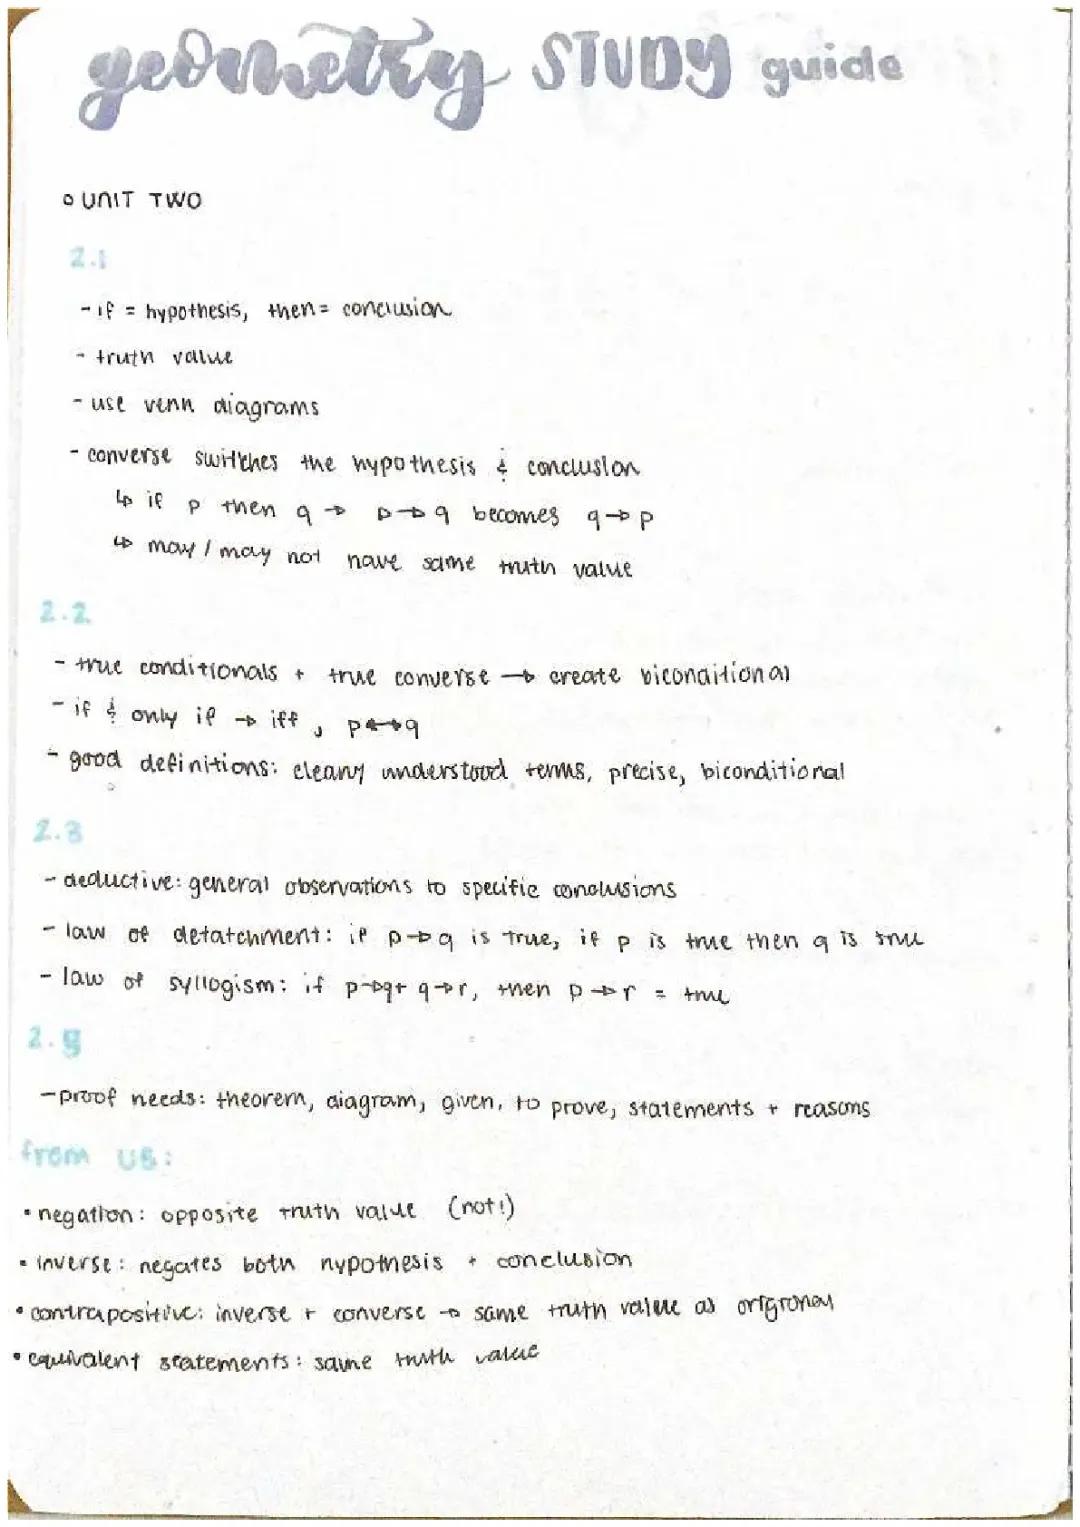 geometry STUDY guide
◦ UNIT TWO
2.1
- if = hypothesis, then = conclusion
- truth value
- use venn diagrams
- converse switches the hypothesis & conclusion
↳ if p then q → p→q becomes q→p
↳ may / may not have same truth value
2.2
- true conditionals + true converse → create biconditional
- if & only if → iff, p↔q
- good definitions: clearly understood terms, precise, biconditional
2.3
- deductive: general observations to specific conclusions
- law of detatchment: if p→q is true, if p is true then q is true
- law of syllogism: if p→q + q→r, then p→r = true
2.
- proof needs: theorem, diagram, given, to prove, statements + reasons
from
• negation: opposite truth value (not!)
• inverse: negates both hypothesis + conclusion
• contrapositive: inverse + converse → same truth value as original
• equivalent statements: same truth value